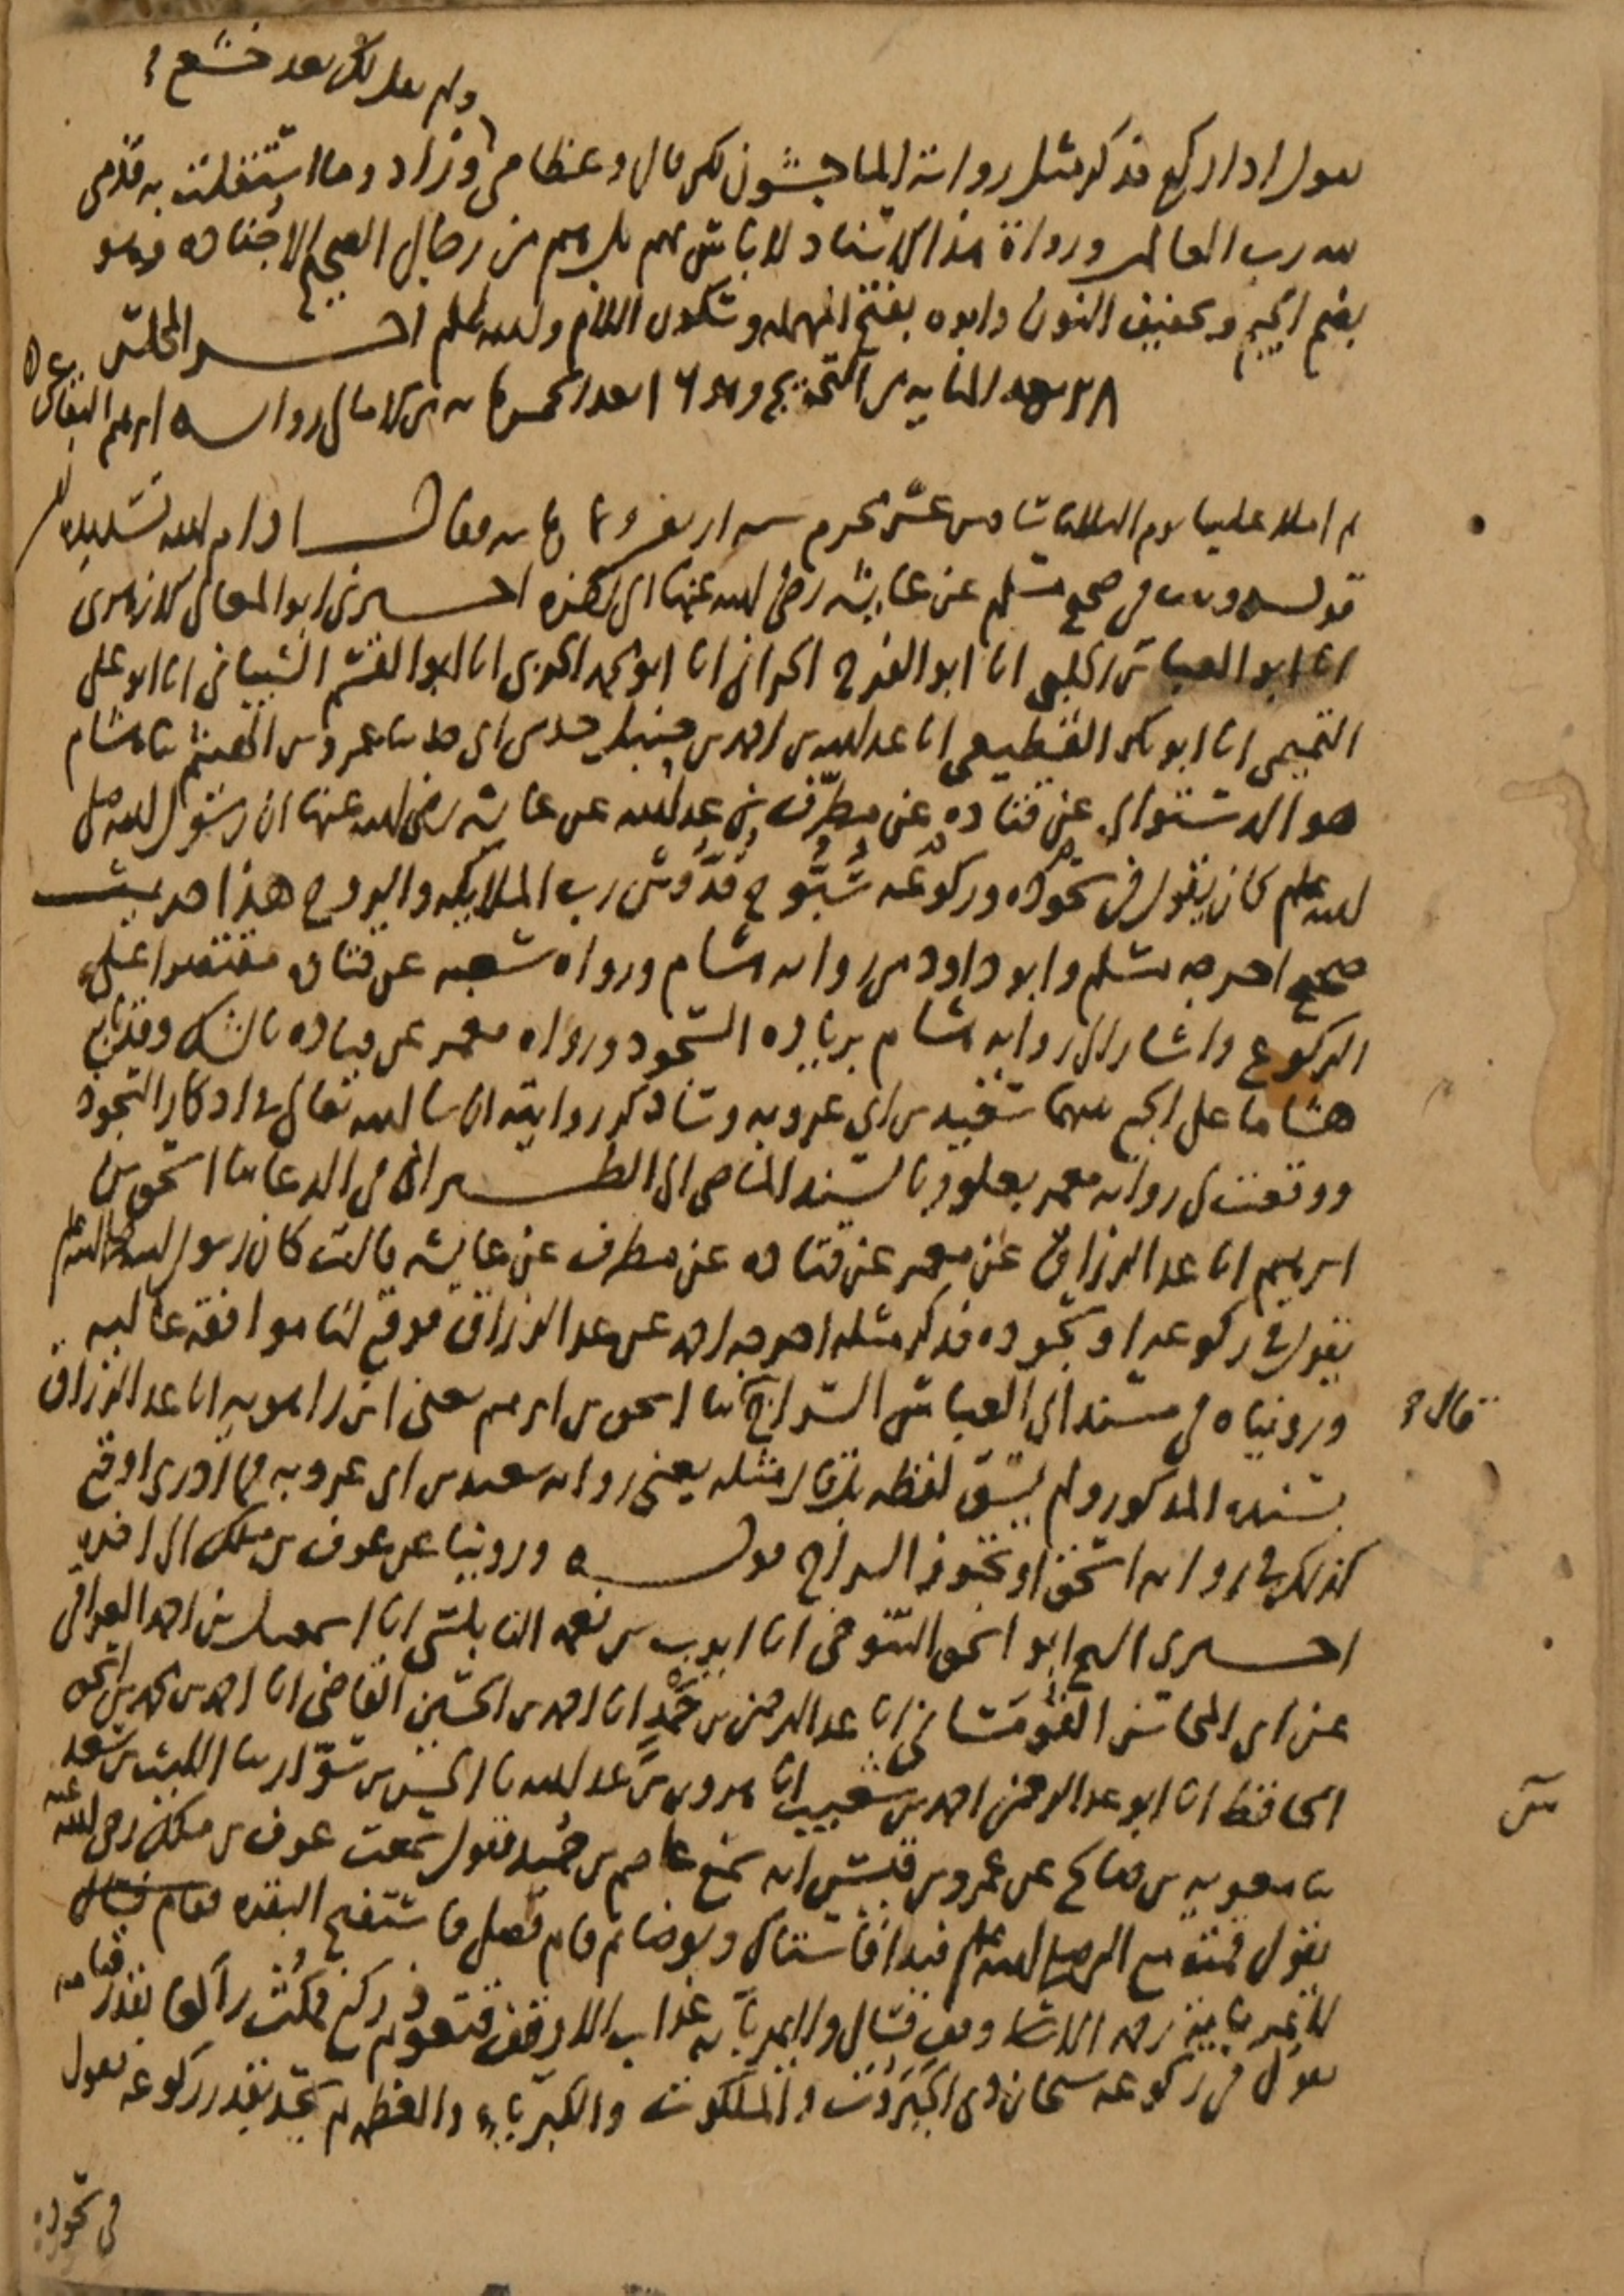 ولم يقل لك بعد خشع
يقول اذا ركع فذكر مثل رواية الماجشون لكن قال وعظامي وزاد وما استقلت به قدمي
لله رب العالمين ورواة هذا الاسناد لا باس بهم بل هم من رجال الصحيح الا جناده وهو
بضم الجيم وتخفيف النون وابوه بفتح المهملة وسكون اللام والله اعلم اخر المجلس
٢٨ بعد المايه من التخريج وهو بعد الخمسمايه من الامالي رواية ابرهيم البقاعي
ثم املا علينا يوم الثلاثا سادس عشر محرم سنه اربعين وثمانمايه فقال ادام الله تسديده
قوله وثبت في صحيح مسلم عن عايشه رضي الله عنها الى اخره اخبرني ابو المعالي الازهري
انا ابو العباس الحلبي انا ابو الفرج الحراني انا ابو محمد الحربي انا ابو القسم الشيباني انا ابو علي
التميمي انا ابو بكر القطيعي انا عبد الله بن احمد بن حنبل حدثني ابي حدثنا عمرو بن الهيثم ثنا هشام
هو الدستوائي عن قتاده عن مطرف بن عبد الله عن عايشه رضي الله عنها ان رسول الله صلى
الله عليه وسلم كان يقول في سجوده وركوعه سُبُّوح قُدُّوس رب الملايكه والروح هذا حديث
صحيح اخرجه مسلم وابو داود من رواية هشام ورواه شعبه عن قتاده مقتصرا على
الركوع واشار الى رواية هشام بزيادة السجود ورواه معمر عن قتاده بالشك وقد تابع
هشاما على الجمع بينهما سعيد بن ابي عروبه وساذكر روايته ان شا الله تعالى في اذكار السجود
ووقعت لي رواية معمر بعلو وبالسند الماضي الى الطبراني في الدعا ثنا اسحق بن
ابرهيم انا عبد الرزاق عن معمر عن قتاده عن مطرف عن عايشه قالت كان رسول الله صلى الله عليه وسلم
يقول في ركوعه او سجوده فذكر مثله اخرجه احمد عن عبد الرزاق فوقع لنا موافقه عاليه
ورويناه في مسند ابي العباس السراج قال ثنا اسحق بن ابرهيم يعني ابن راهويه انا عبد الرزاق
بسنده المذكور ولم يسق لفظه بل قال مثله يعني رواية سعيد بن ابي عروبه فما ادري اوقع
كذلك في رواية اسحق او تجوز السراج قوله وروينا عن عوف بن ملك الى اخره
اخبرني الشيخ ابو اسحق التنوخي انا ايوب بن نعمه النابلسي انا اسمعيل بن احمد العراقي
عن ابي المحاسن القومساني انا عبد الرحمن بن حَمْد انا احمد بن الحسين القاضي انا احمد بن محمد بن اسحق
الحافظ انا ابو عبد الرحمن احمد بن شعيب انا هرون بن عبد الله ثنا الحسن بن سوّار ثنا الليث بن سعد
ثنا معويه بن صالح عن عمرو بن قيس انه سمع عاصم بن حُميد يقول سمعت عوف بن ملك رضي الله عنه
يقول قمت مع النبي صلى الله عليه وسلم فبدا فاستاك وتوضا ثم قام فصلى فاستفتح البقره فقام فسال
لا يمر باية رحمه الا وقف فسال ولا يمر باية عذاب الا وقف فتعوذ ثم ركع فمكث راكعا بقدر قيامه
يقول في ركوعه سبحان ذي الجَبَروت والملكوت والكبرياء والعظمه ثم سجد بقدر ركوعه يقول
في سجوده